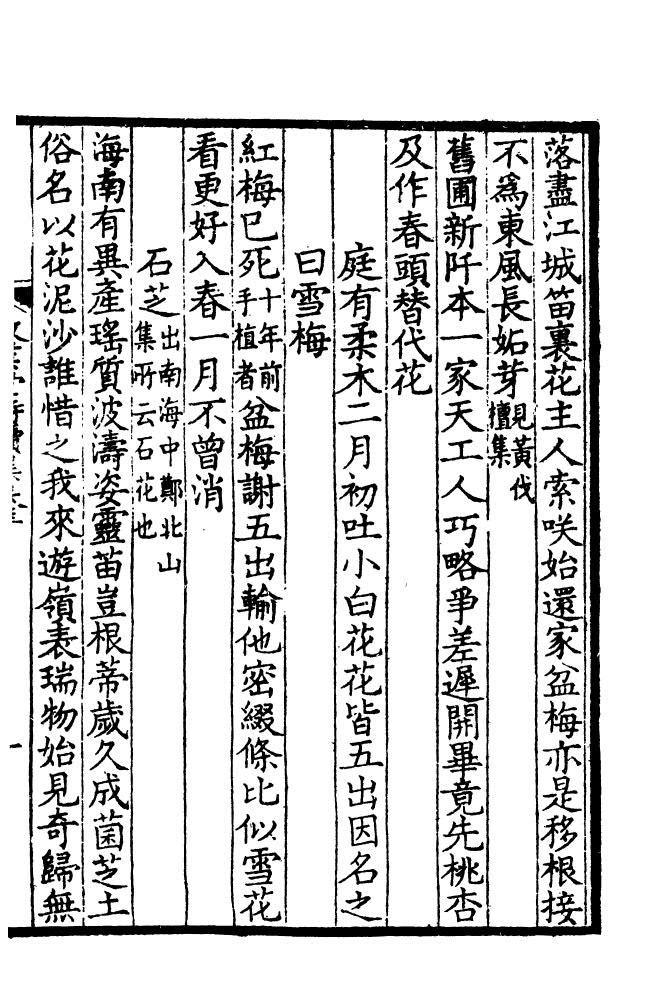 落盡江城笛裏花主人索咲始還家盆梅亦是移根接
不爲東風長妬芽見黃伐檀集
舊圃新阡本一家天工人巧略爭差遲開畢竟先桃杏
及作春頭替代花
庭有柔木二月初吐小白花花皆五出因名之
曰雪梅
紅梅巳死十年前手植者盆梅謝五出輸他密綴條比似雪花
看更好入春一月不曾消
石芝出南海中鄭北山集所云石花也
海南有異產瑤質波濤姿靈苗豈根蒂歲久成菌芝土
俗名以花泥沙誰惜之我來遊嶺表瑞物始見奇歸無